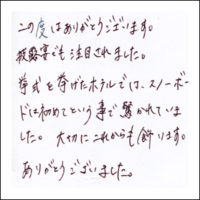 この度はありがとうございます。
披露宴でも注目されました。
挙式を挙げたホテルでは、スノーボー
ドは初めてという事で驚かれていま
した。大切にこれからも飾ります。
ありがとうございました。